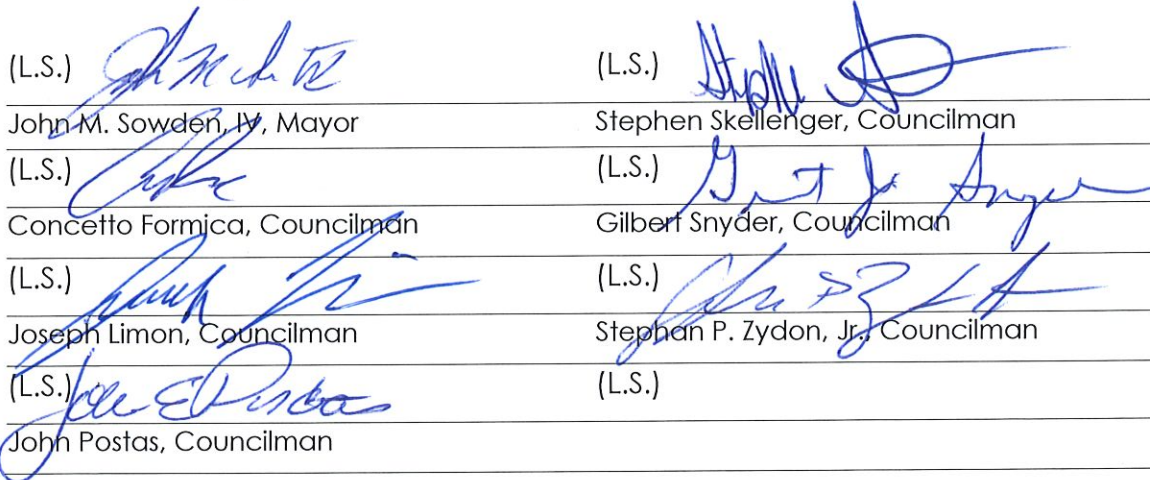 (L.S.)
John M. Sowden, IV, Mayor
(L.S.)
Concetto Formica, Councilman
(L.S.)
Joseph Limon, Councilman
(L.S.)
John Postas, Councilman
(L.S.)
Stephen Skellenger, Councilman
(L.S.)
Gilbert Snyder, Councilman
(L.S.)
Stephan P. Zydon, Jr., Councilman
(L.S.)